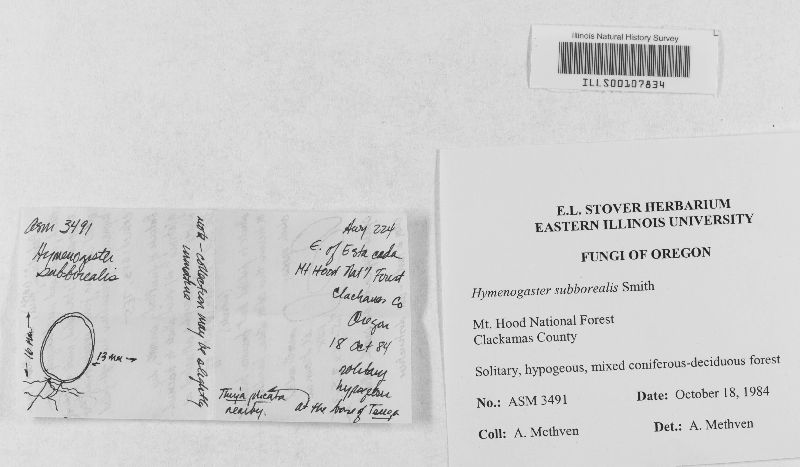 Illinois Natural History Survey
ILLS00107834
E.L. STOVER HERBARIUM
EASTERN ILLINOIS UNIVERSITY
FUNGI OF OREGON
Hymenogaster subborealis Smith
Mt. Hood National Forest
Clackamas County
Solitary, hypogeous, mixed coniferous-deciduous forest
No.: ASM 3491 Date: October 18, 1984
Coll: A. Methven Det.: A. Methven
ASM 3491
Hymenogaster
subborealis
16 mm
13 mm
note - collection may be slightly
immature
Hwy 224
E. of Estacada
Mt Hood Nat'l Forest
Clackamas Co
Oregon
18 Oct 84
solitary
hypogeous
at the base of Tsuga
Thuja plicata
nearby.